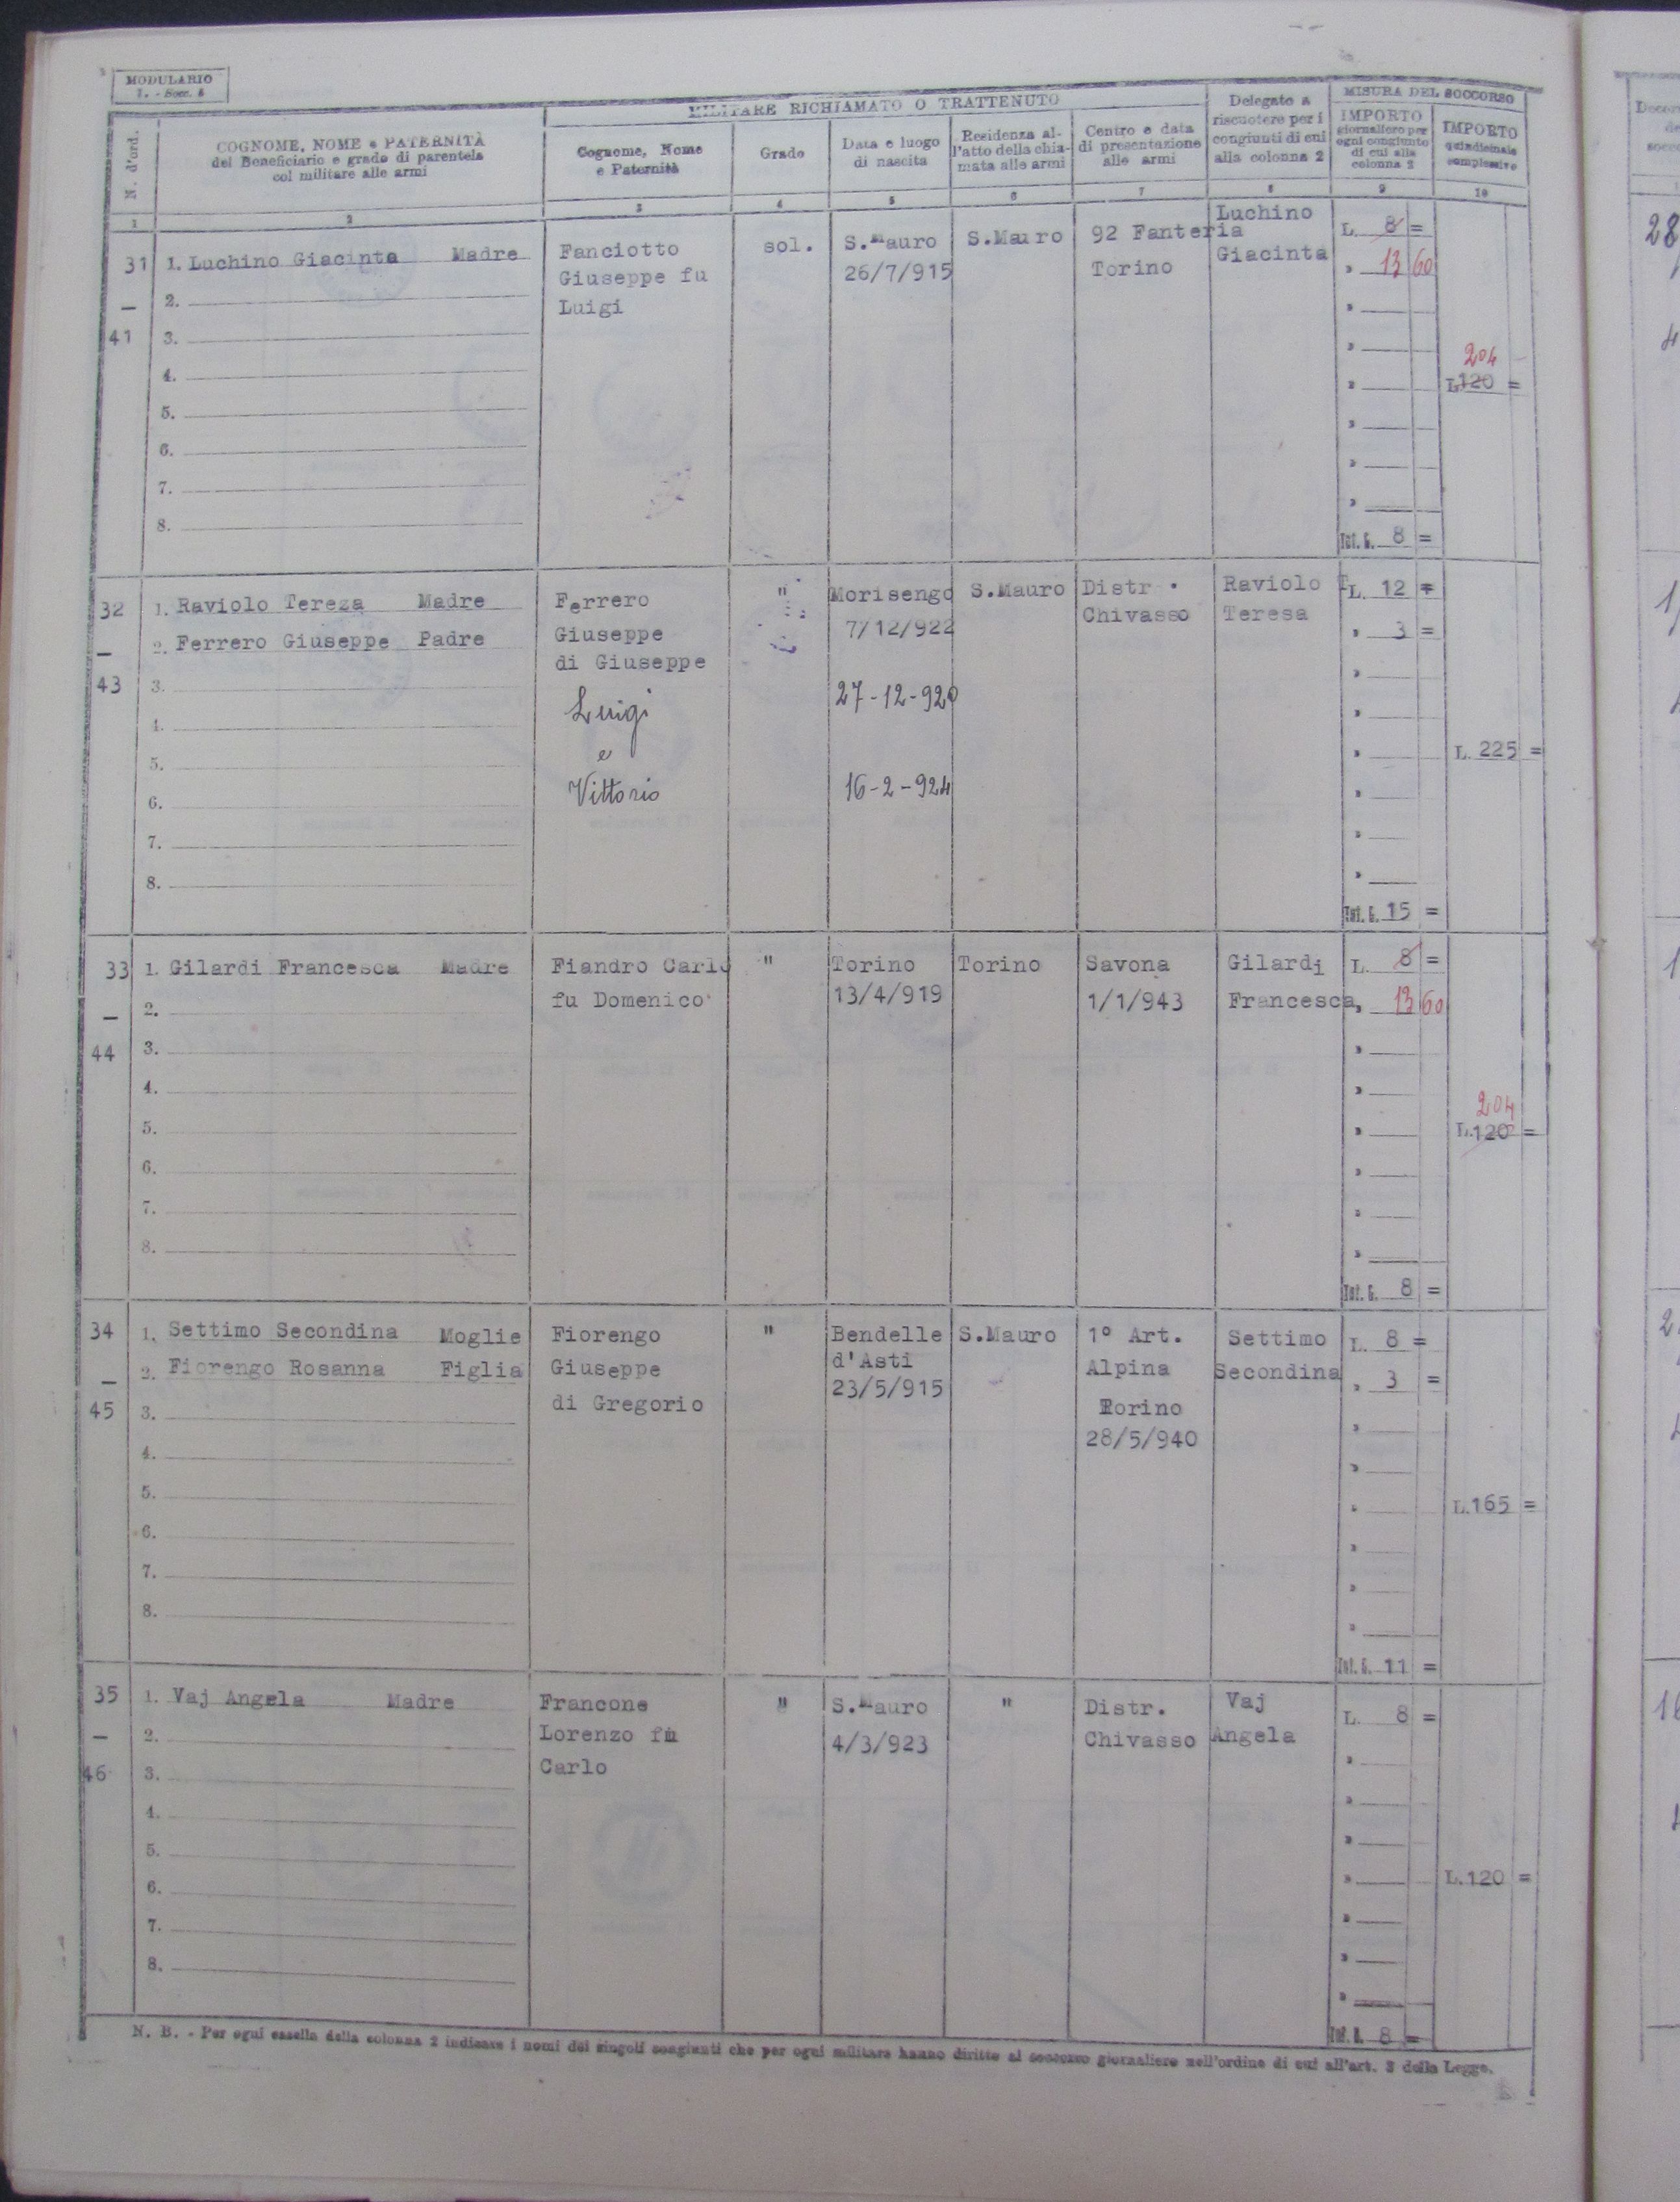 MODULARIO
1. - Socc. 6
N. d'ord.
COGNOME, NOME e PATERNITÀ
del Beneficiario e grado di parentela
col militare alle armi
MILITARE RICHIAMATO O TRATTENUTO
Cognome, Nome
e Paternità
Grado
Data e luogo
di nascita
Residenza al-
l'atto della chia-
mata alle armi
Centro e data
di presentazione
alle armi
Delegato a
riscuotere per i
congiunti di cui
alla colonna 2
MISURA DEL SOCCORSO
IMPORTO
giornaliero per
ogni congiunto
di cui alla
colonna 2
IMPORTO
quindicinale
complessivo
1 2 3 4 5 6 7 8 9 10
31
—
41
1. Luchino Giacinta Madre
2.
3.
4.
5.
6.
7.
8.
Fanciotto
Giuseppe fu
Luigi
sol.
S.Mauro
26/7/915
S.Mauro
92 Fanteria
Torino
Luchino
Giacinta
L. 8 =
" 13 60
Tot. G. 8 =
204
L.120 =
32
—
43
1. Raviolo Tereza Madre
2. Ferrero Giuseppe Padre
3.
4.
5.
6.
7.
8.
Ferrero
Giuseppe
di Giuseppe
Luigi
e
Vittorio
"
Morisengo
7/12/922
27-12-920
16-2-924
S.Mauro
Distr.
Chivasso
Raviolo
Teresa
L. 12 =
" 3 =
Tot. G. 15 =
L. 225 =
33
—
44
1. Gilardi Francesca Madre
2.
3.
4.
5.
6.
7.
8.
Fiandro Carlo
fu Domenico
"
Torino
13/4/919
Torino
Savona
1/1/943
Gilardi
Francesca
L. 8 =
" 13 60
Tot. G. 8 =
204
L.120 =
34
—
45
1. Settimo Secondina Moglie
2. Fiorengo Rosanna Figlia
3.
4.
5.
6.
7.
8.
Fiorengo
Giuseppe
di Gregorio
"
Bendelle
d'Asti
23/5/915
S.Mauro
1° Art.
Alpina
Torino
28/5/940
Settimo
Secondina
L. 8 =
" 3 =
Tot. G. 11 =
L.165 =
35
—
46
1. Vaj Angela Madre
2.
3.
4.
5.
6.
7.
8.
Francone
Lorenzo fu
Carlo
"
S.Mauro
4/3/923
"
Distr.
Chivasso
Vaj
Angela
L. 8 =
Tot. G. 8 =
L.120 =
N. B. - Per ogni casella della colonna 2 indicare i nomi dei singoli congiunti che per ogni militare hanno diritto al soccorso giornaliero nell'ordine di cui all'art. 3 della Legge.